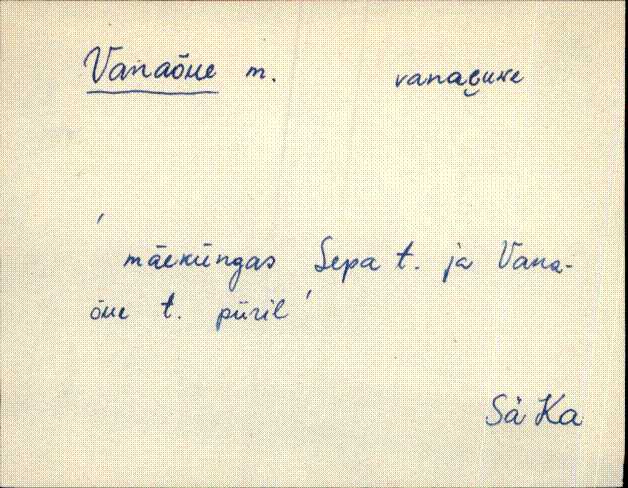 Vanaõue m. vanae̮uke
' mäeküngas Sepa t. ja Vana-
õue t. piiril '
Sä Ka